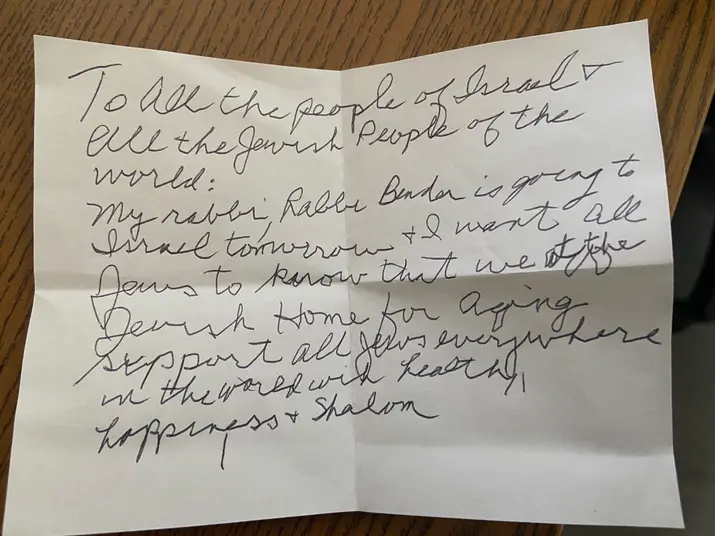 To All the people of Israel &
All the Jewish People of the
world:
My rabbi, Rabbi Bender is going to
Israel tomorrow & I want all
Jews to know that we at the
Jewish Home for Aging
support all Jews everywhere
in the world with health,
happiness & Shalom